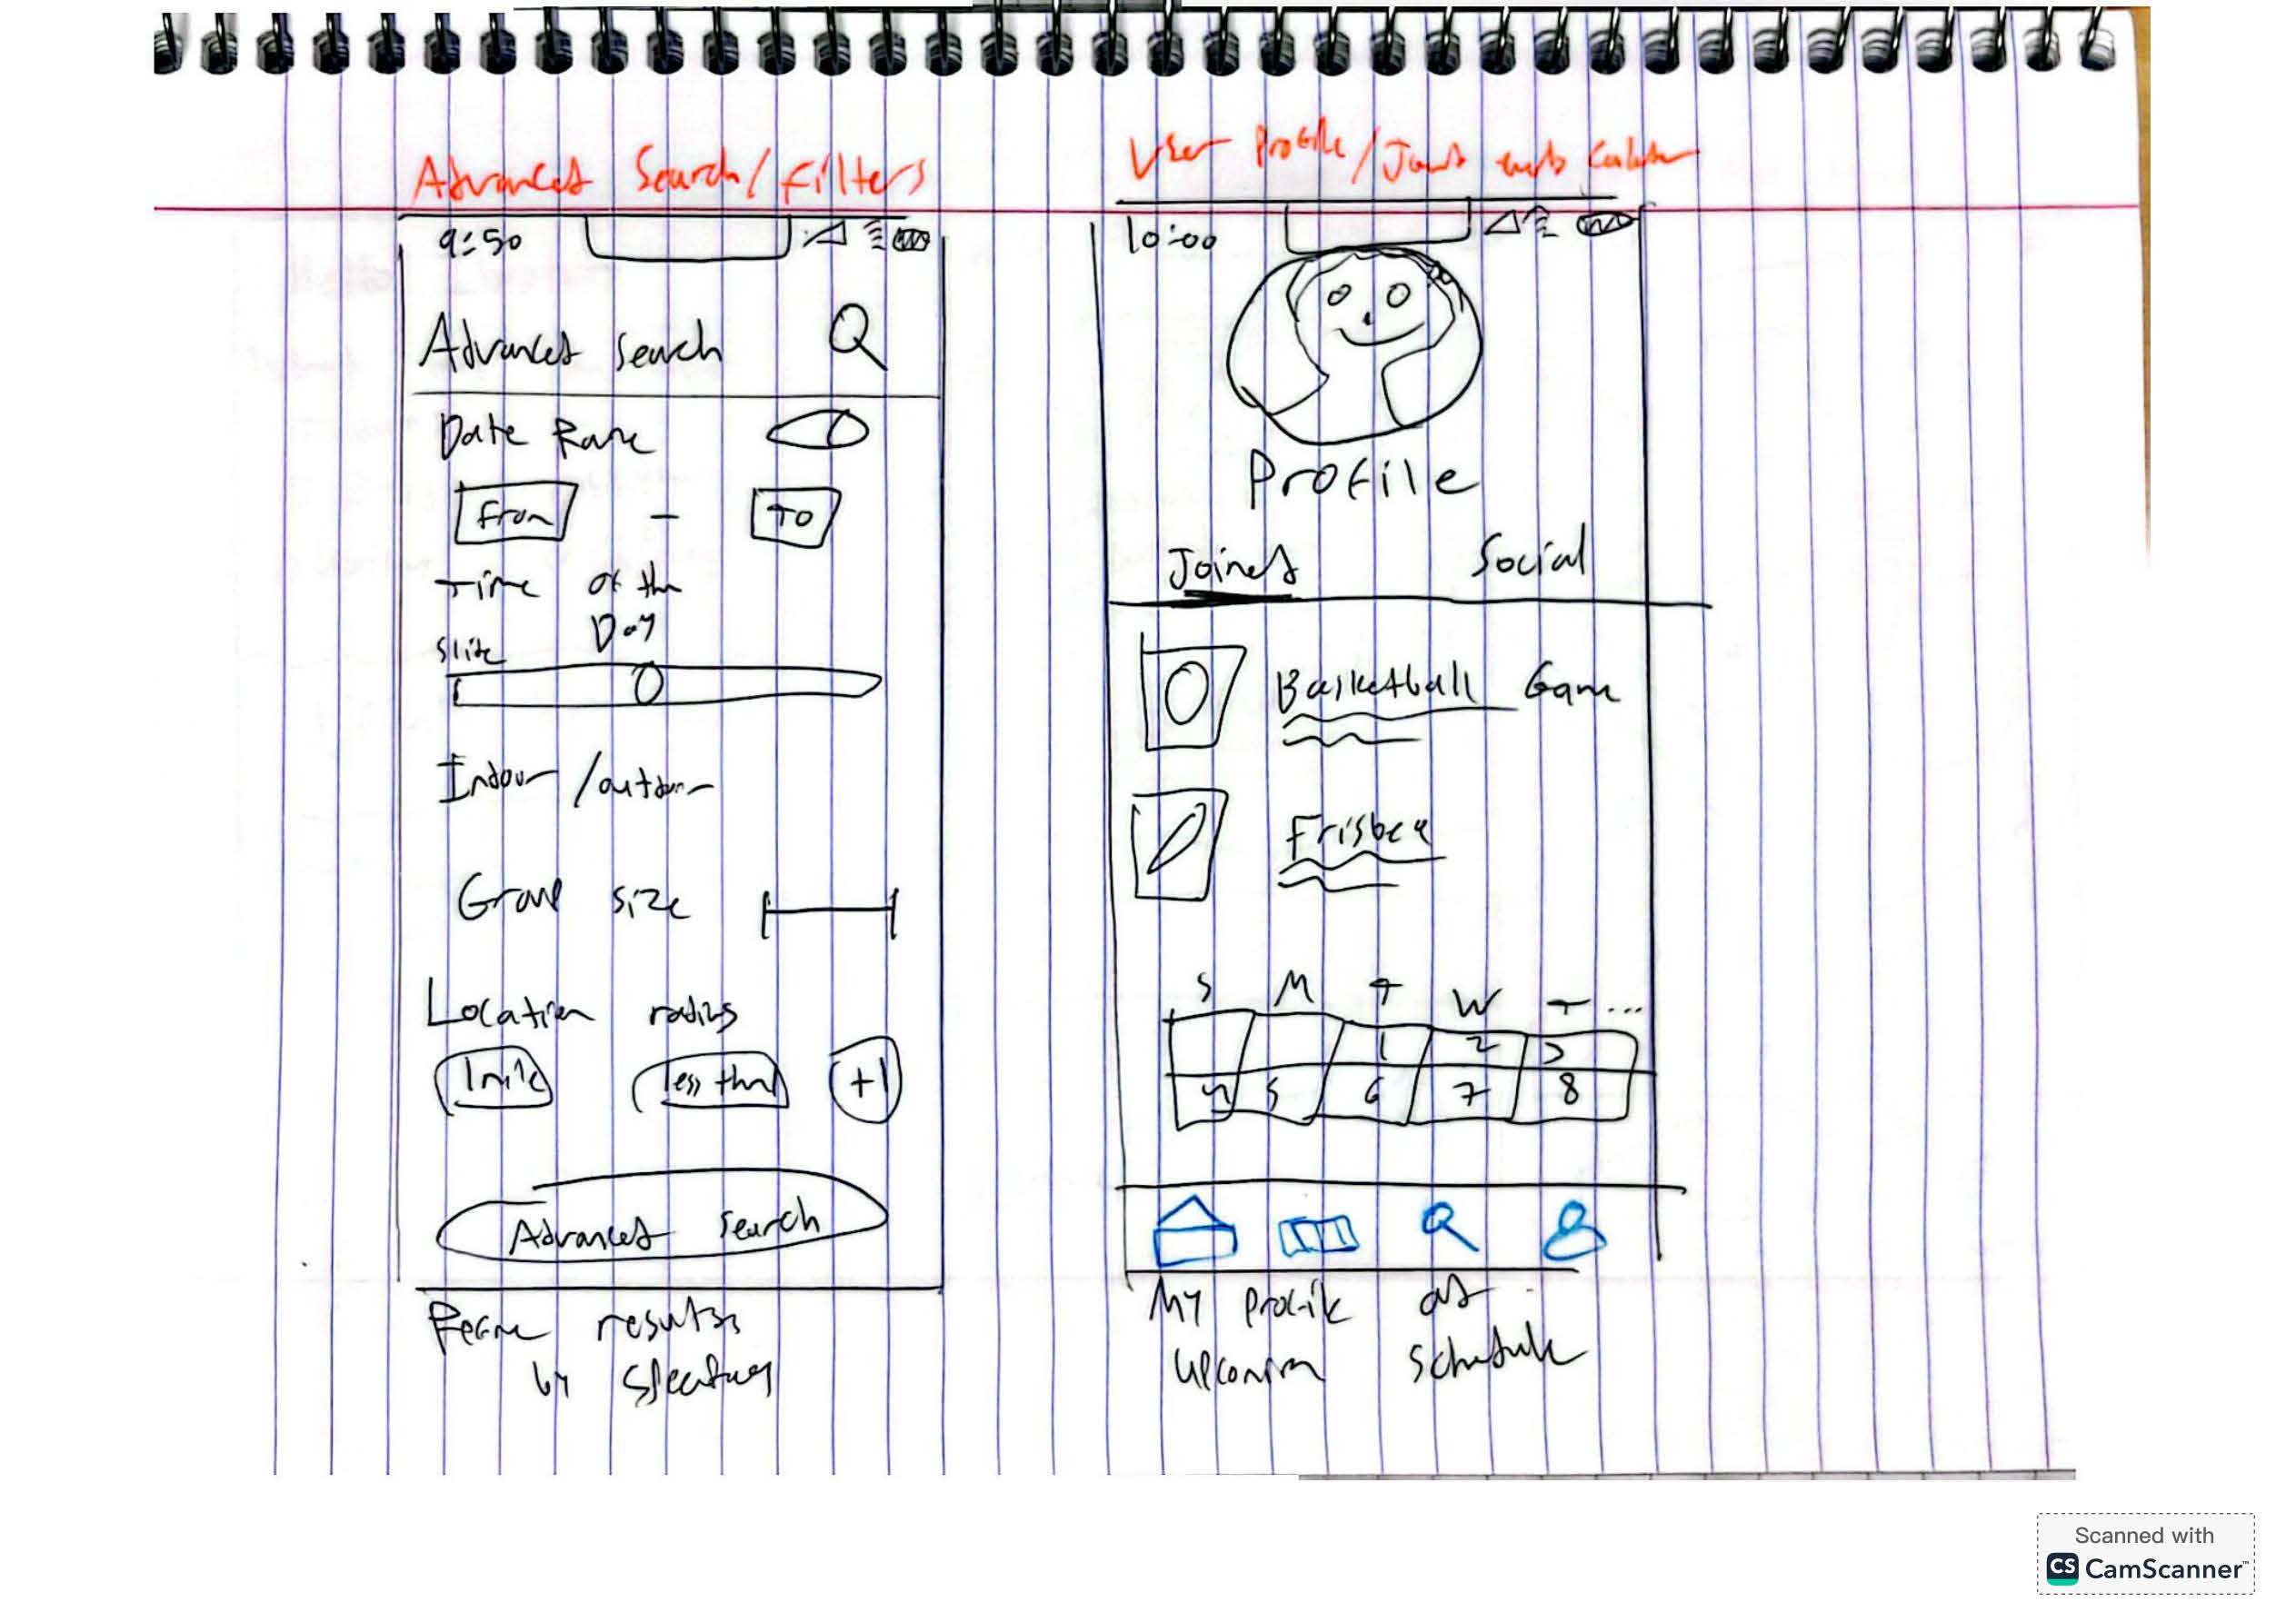 Advanced Search/Filters
9:50
Advanced Search
Date Range
From - To
Time of the
Day
Slide
Indoor/outdoor
Group size
Location radius
1 mile less than +1
Advanced Search
results
by
User Profile/Joined events Calendar
10:00
Profile
Joined Social
Basketball Game
Frisbee
S M T W T ...
1 2 3
4 5 6 7 8
My profile
upcoming schedule
Scanned with
CS CamScanner™